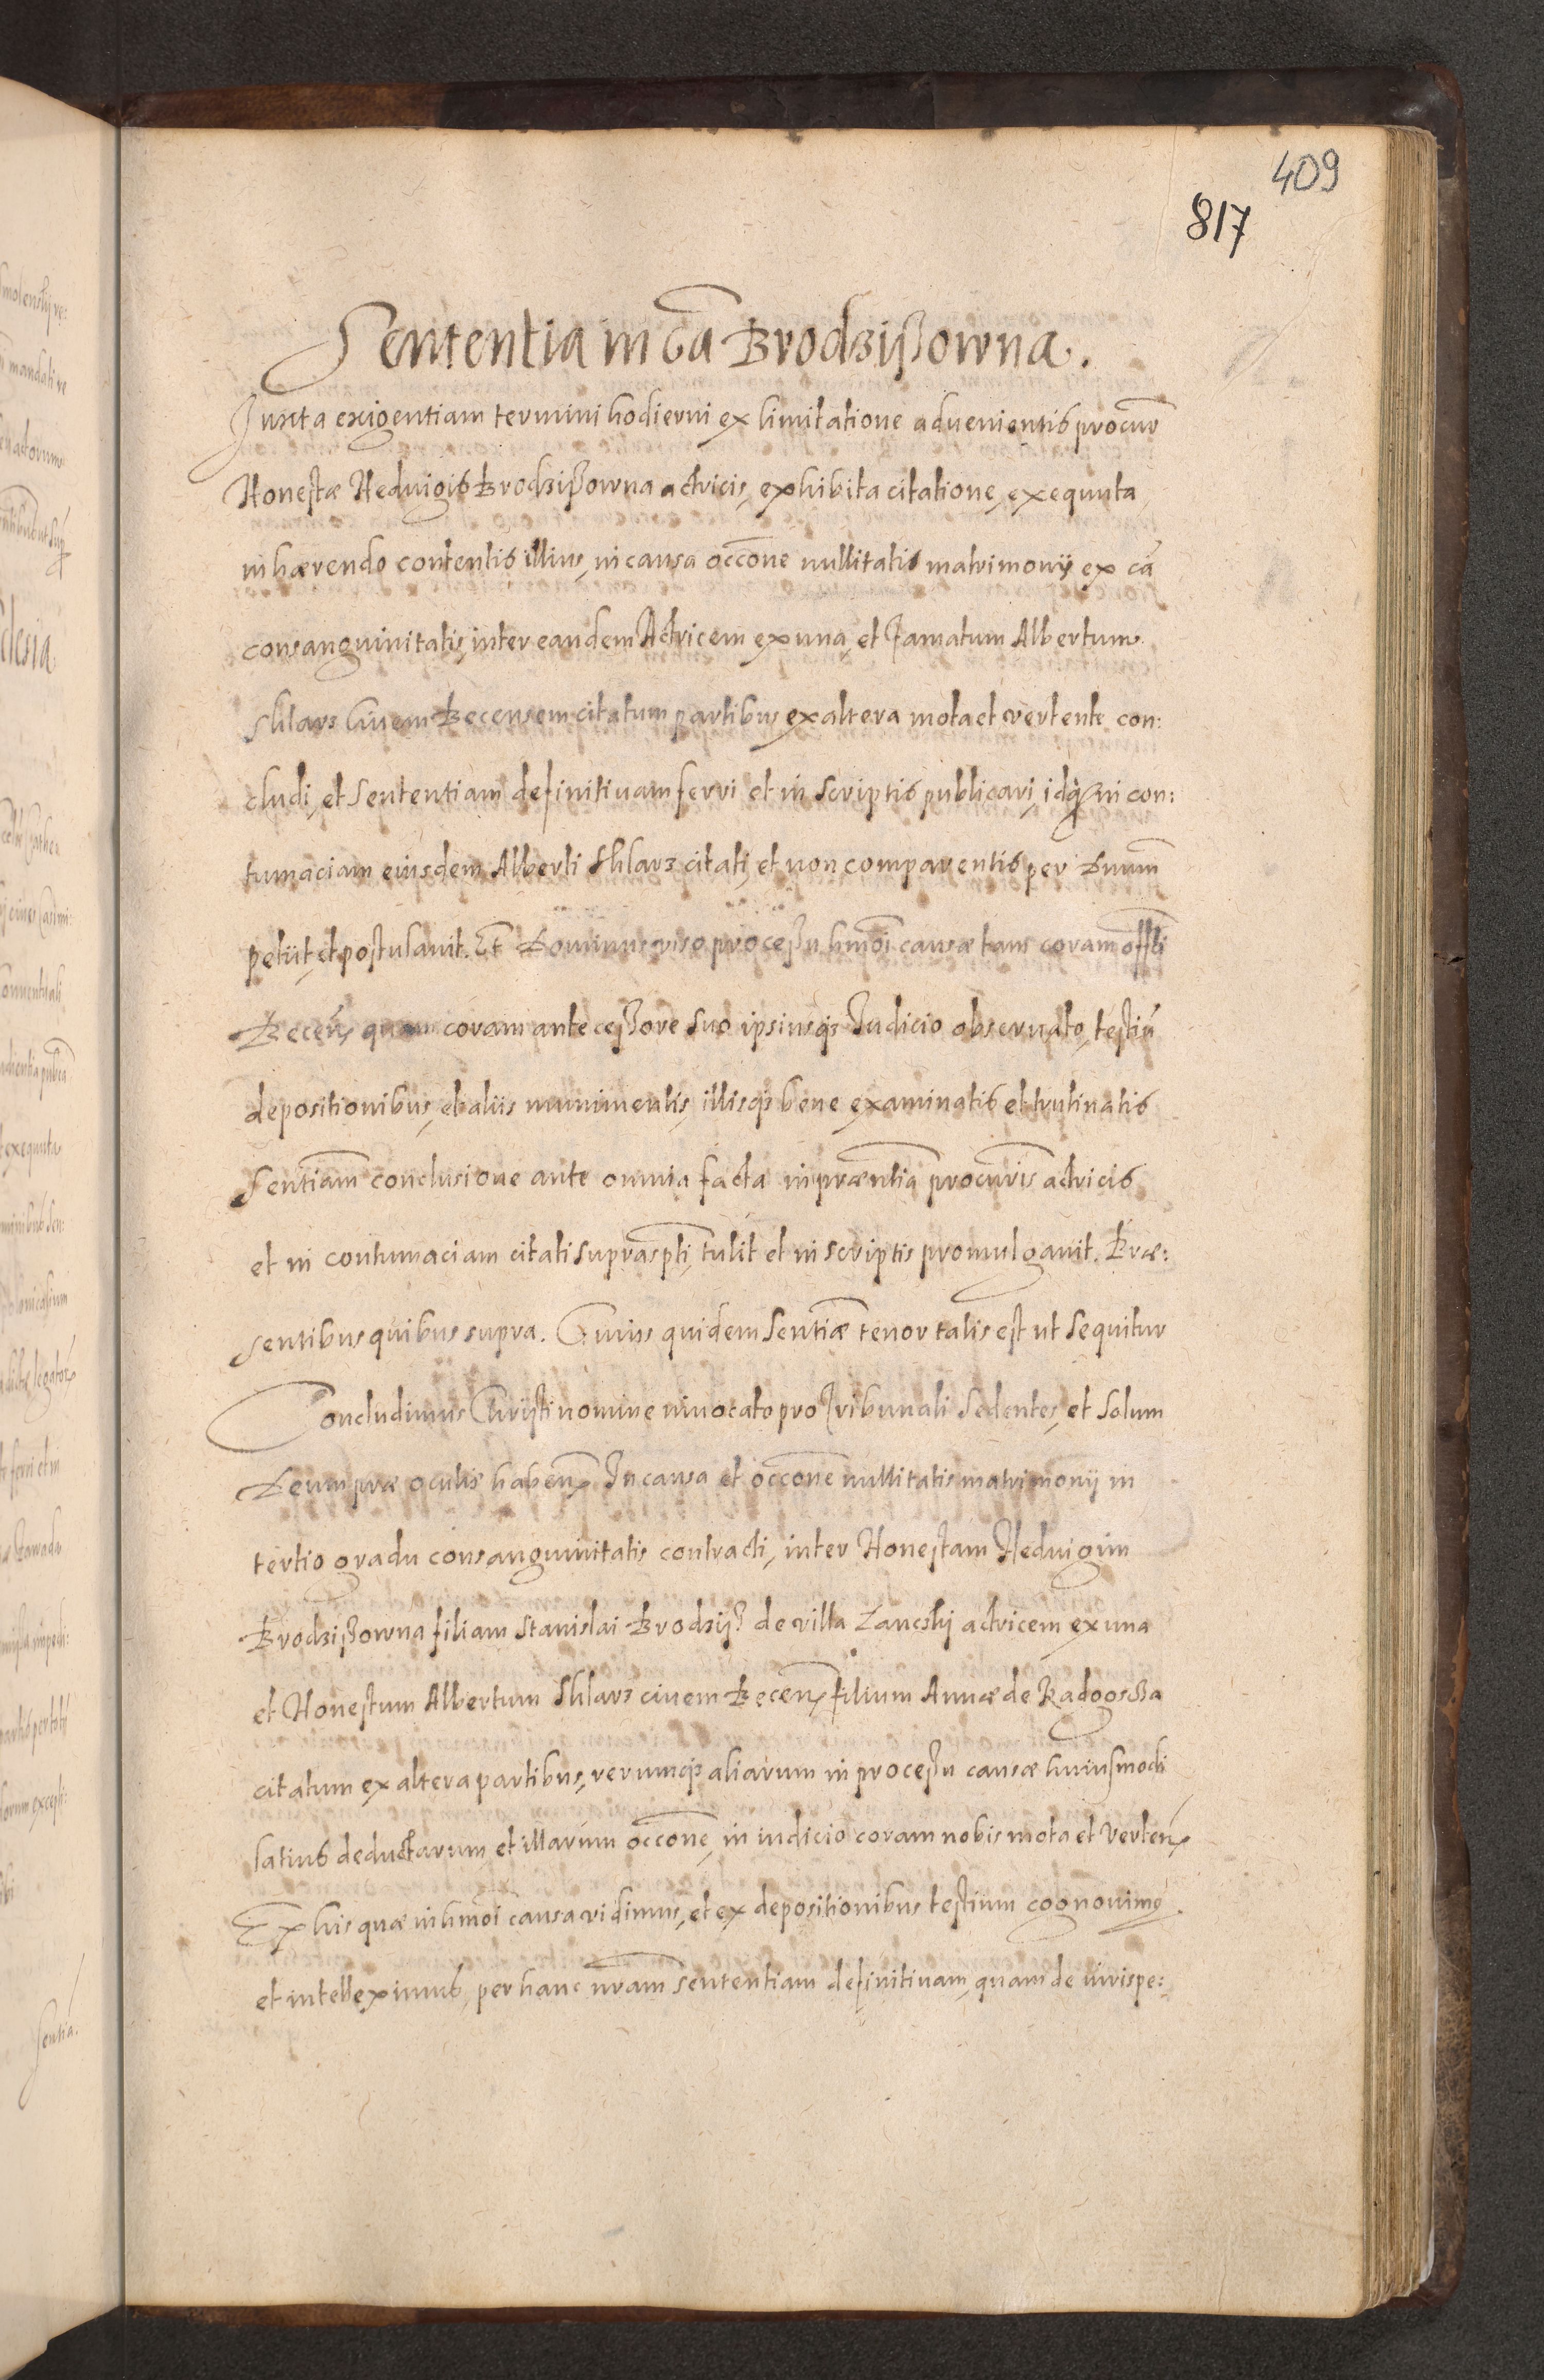 409
817
Sententia in cã Brodzißowna.
Juxta exigentiam termini hodierni ex limitatione aduenientis procur̃
Honestæ Hedvigis Brodzißowna actricis, exhibita citatione, exequuta,
inhærendo contentis illius, in causa occ̃one nullitatis matrimonij ex cã
consanguinitatis, inter eandem Actricem ex una, et Famatum Albertum
Sklarz Ciuem Becensem citatum partibus ex altera mota et vertente con:
cludi, et sententiam definitiuam ferri et in scriptis publicari, idq̃ in con:
tumaciam eiusdem Alberti Sklarz citati, et non comparentis per Dnum̃
petiit, et postulauit. Et Dominus viso processu hmõi causæ tam coram offli
Becen̄ quam coram antecessore suo ipsiusq́ Judicio obseruato, testiũ
depositionibus, et aliis munimentis, illisq́ bene examinatis et trutinatis
Sentiam̃ conclusione ante omnia facta in præntia procuris actricis
et in contumaciam citati suprasp̃ti, tulit et in scriptis promulgauit. Præ:
sentibus quibus supra. Cuius quidem sentiæ̃ tenor talis est ut sequitur
Concludimus Christi nomine inuocato pro Tribunali sedentes, et solum
Deum præ oculis haben̄ In causa et occ̃one nullitatis matrimonij in
tertio gradu consanguinitatis contracti, inter Honestam Hedvigim
Brodzißowna filiam Stanislai Brodziß de villa Zancskij actricem ex una
et Honestum Albertum Sklarz ciuem Becen̄ filium Annæ de Radogossza
citatum ex altera partibus, rerumq́ aliarum in processu causæ huiusmodi
latius deductarum, et illarum occ̃one, in iudicio coram nobis mota et verten̄
Ex his quæ in hmõi causa vidimus, et ex depositionibus testium cognouimꝰ.
et intelleximus, per hanc nram̃ sententiam definitiuam, quam de iurispe: